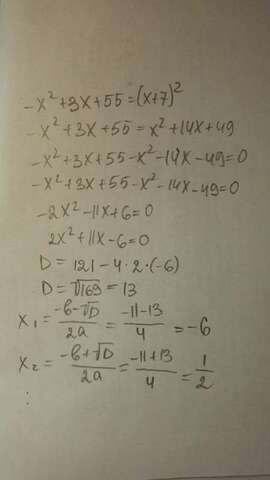 -x²+3x+55=(x+7)²
-x²+3x+55=x²+14x+49
-x²+3x+55-x²-14x-49=0
-x²+3x+55-x²-14x-49=0
-2x²-11x+6=0
2x²+11x-6=0
D=121-4·2·(-6)
D=√169=13
x₁=(-b-√D)/2a=(-11-13)/4=-6
x₂=(-b+√D)/2a=(-11+13)/4=1/2